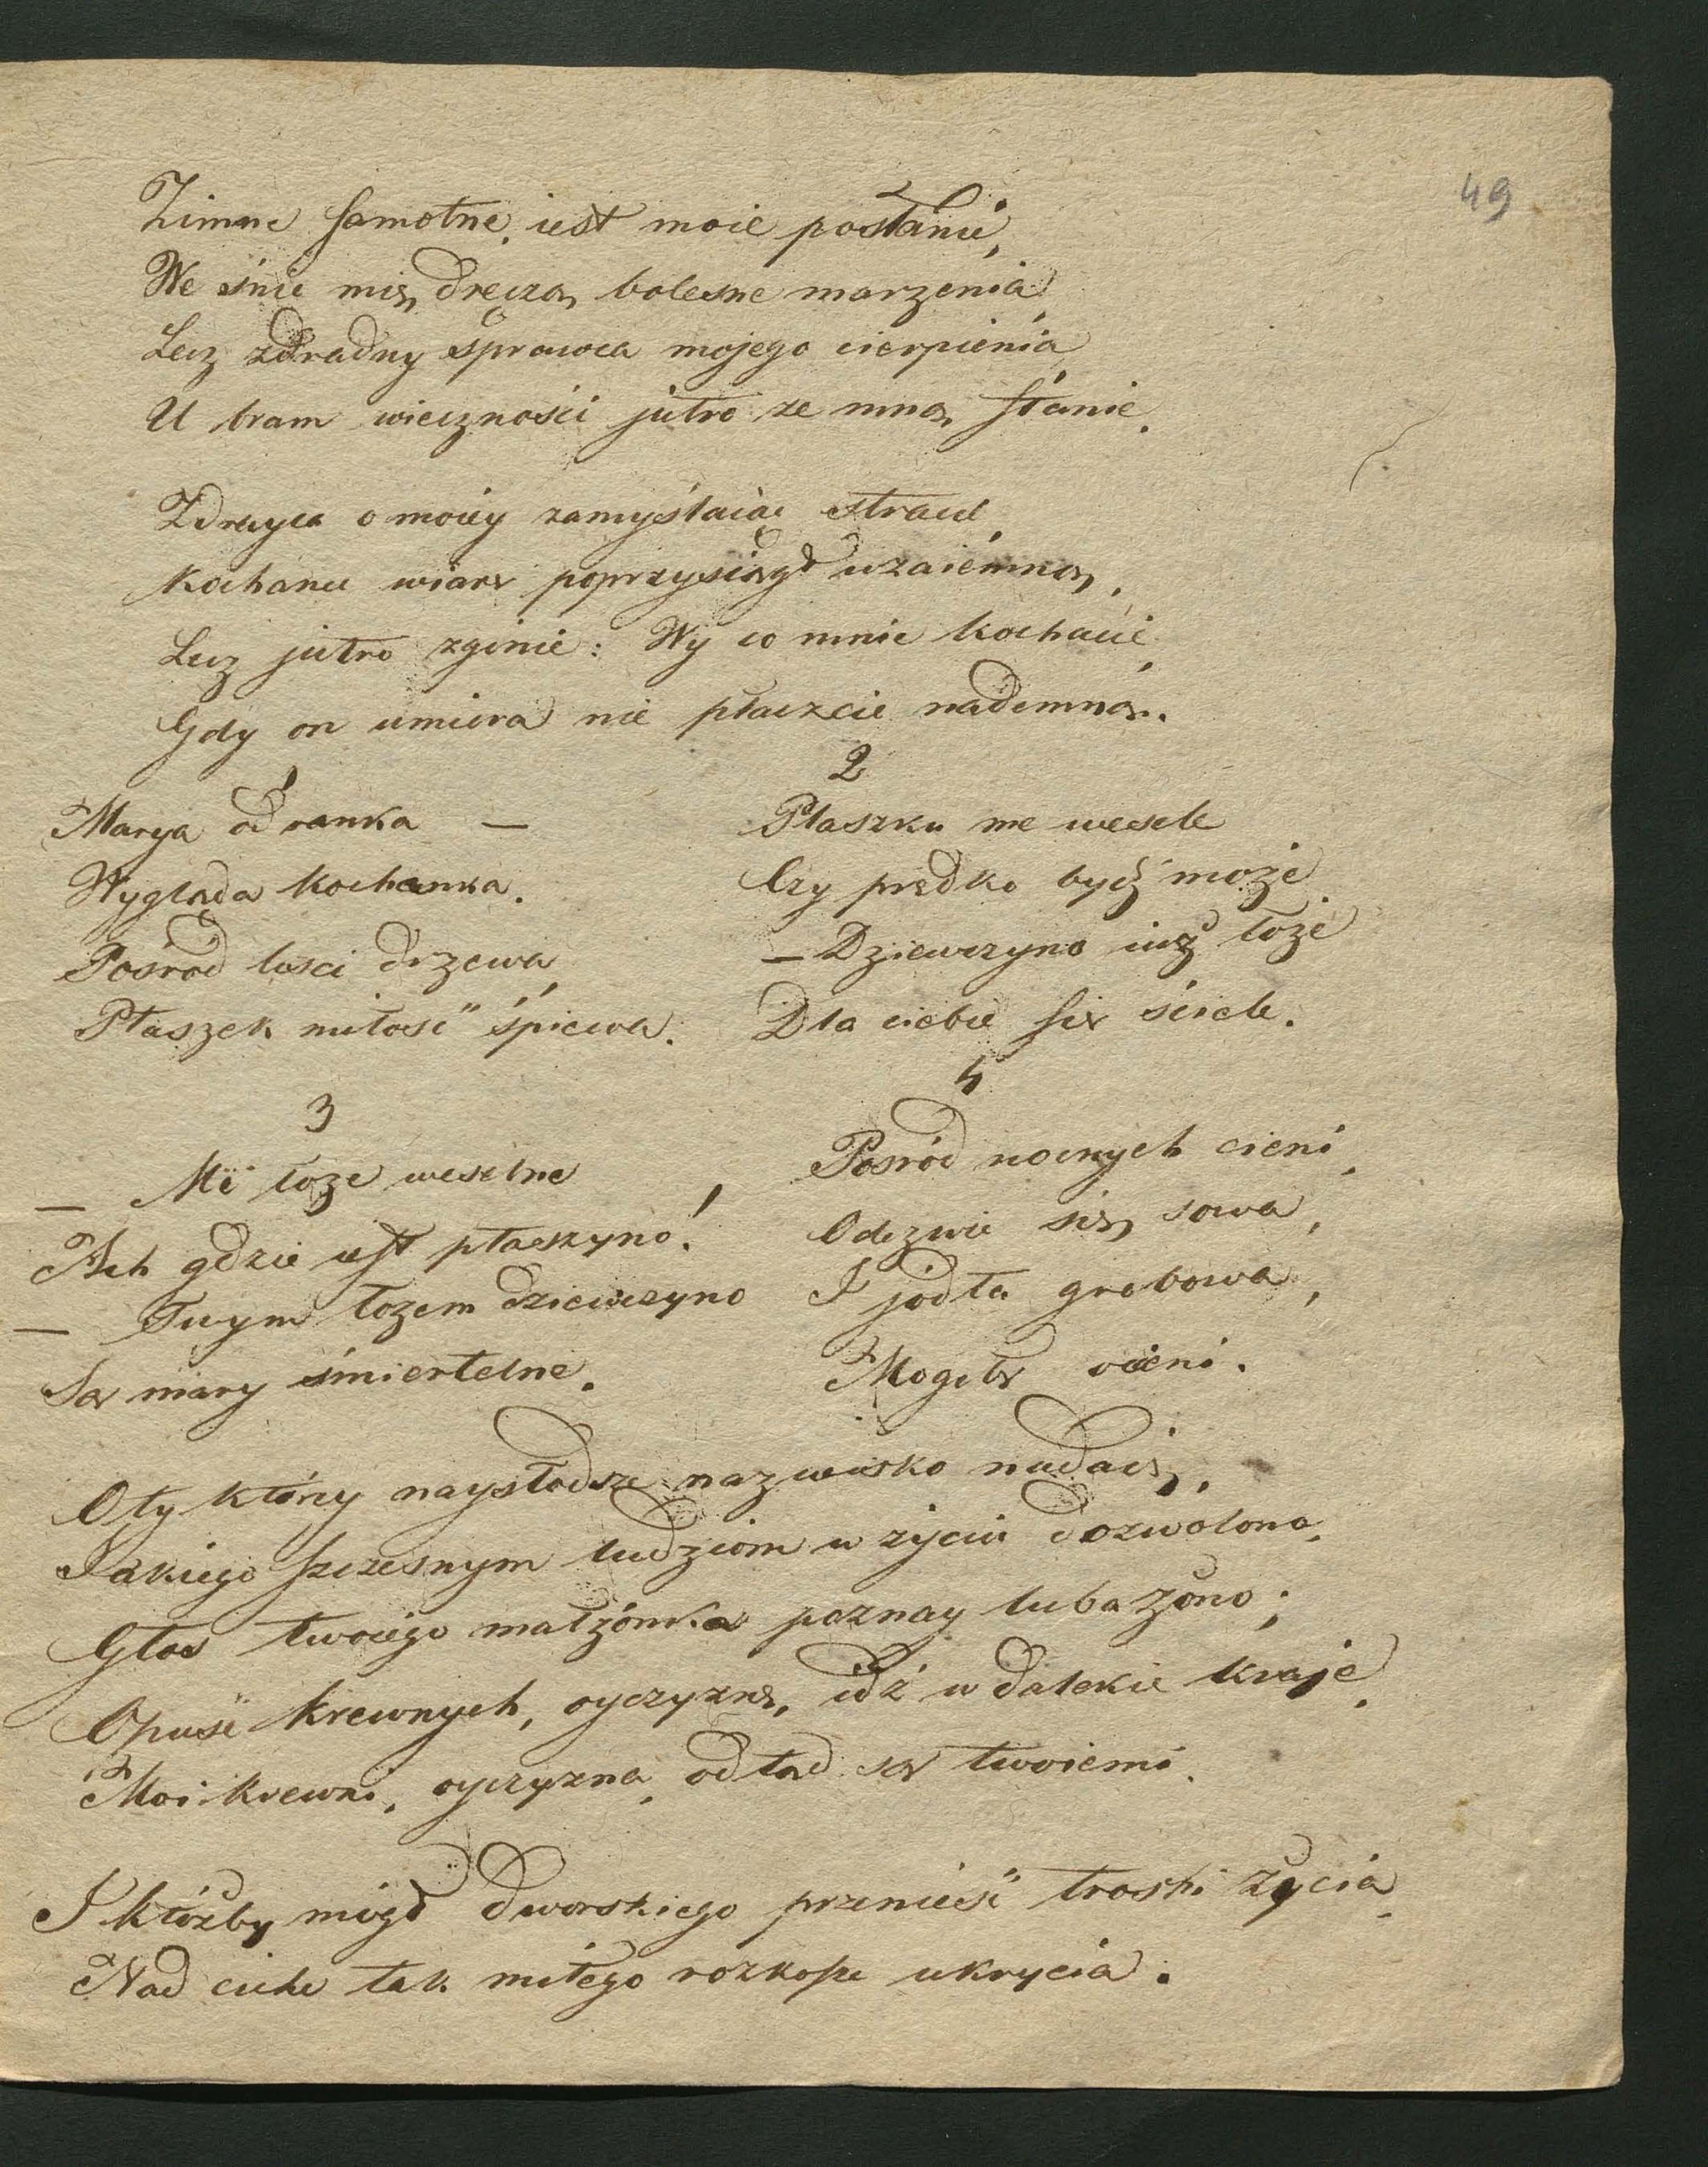 49
Zimne samotne iest moie posłanie,
We śnie mię dręczą bolesne marzenia
Lecz zdradny sprawca mojego cierpienia
U bram wieczności jutro ze mną stanie.
Zdrayca o moiey zamyślaiąc stracie
Kochance wiarę poprzysiągł wzaiemną,
Lecz jutro zginie: Wy co mnie kochacie
Gdy on umiera nie płaczcie nademną.
1
Marya od ranka —
Wygląda kochanka.
Pośrod liści drzewa
Ptaszek miłość śpiewa.
2
Ptaszku me wesele
Czy prędko bydź może
— Dziewczyno iuż łoże
Dla ciebie się ściele.
3
— Me łoże weselne
Ach gdzie iest ptaszyno!
— Twym łozem dziewczyno
Są mary śmiertelne.
4
Pośród nocnych cieni,
Odezwie się sowa,
I jodła grobowa,
Mogiłę ocieni.
O ty który naysłodsze nazwisko nadaię,
Jakiego szczesnym ludziom w życiu dozwolono,
Głos twoiego małżonka poznay luba żono;
Opuść krewnych, oyczyznę, idź w dalekie kraje,
Moi krewni, oyczyzna, odtąd są twoiemi.
I któżby mógł dworskiego przenieść troski życia
Nad ciche tak miłego rozkosze ukrycia.